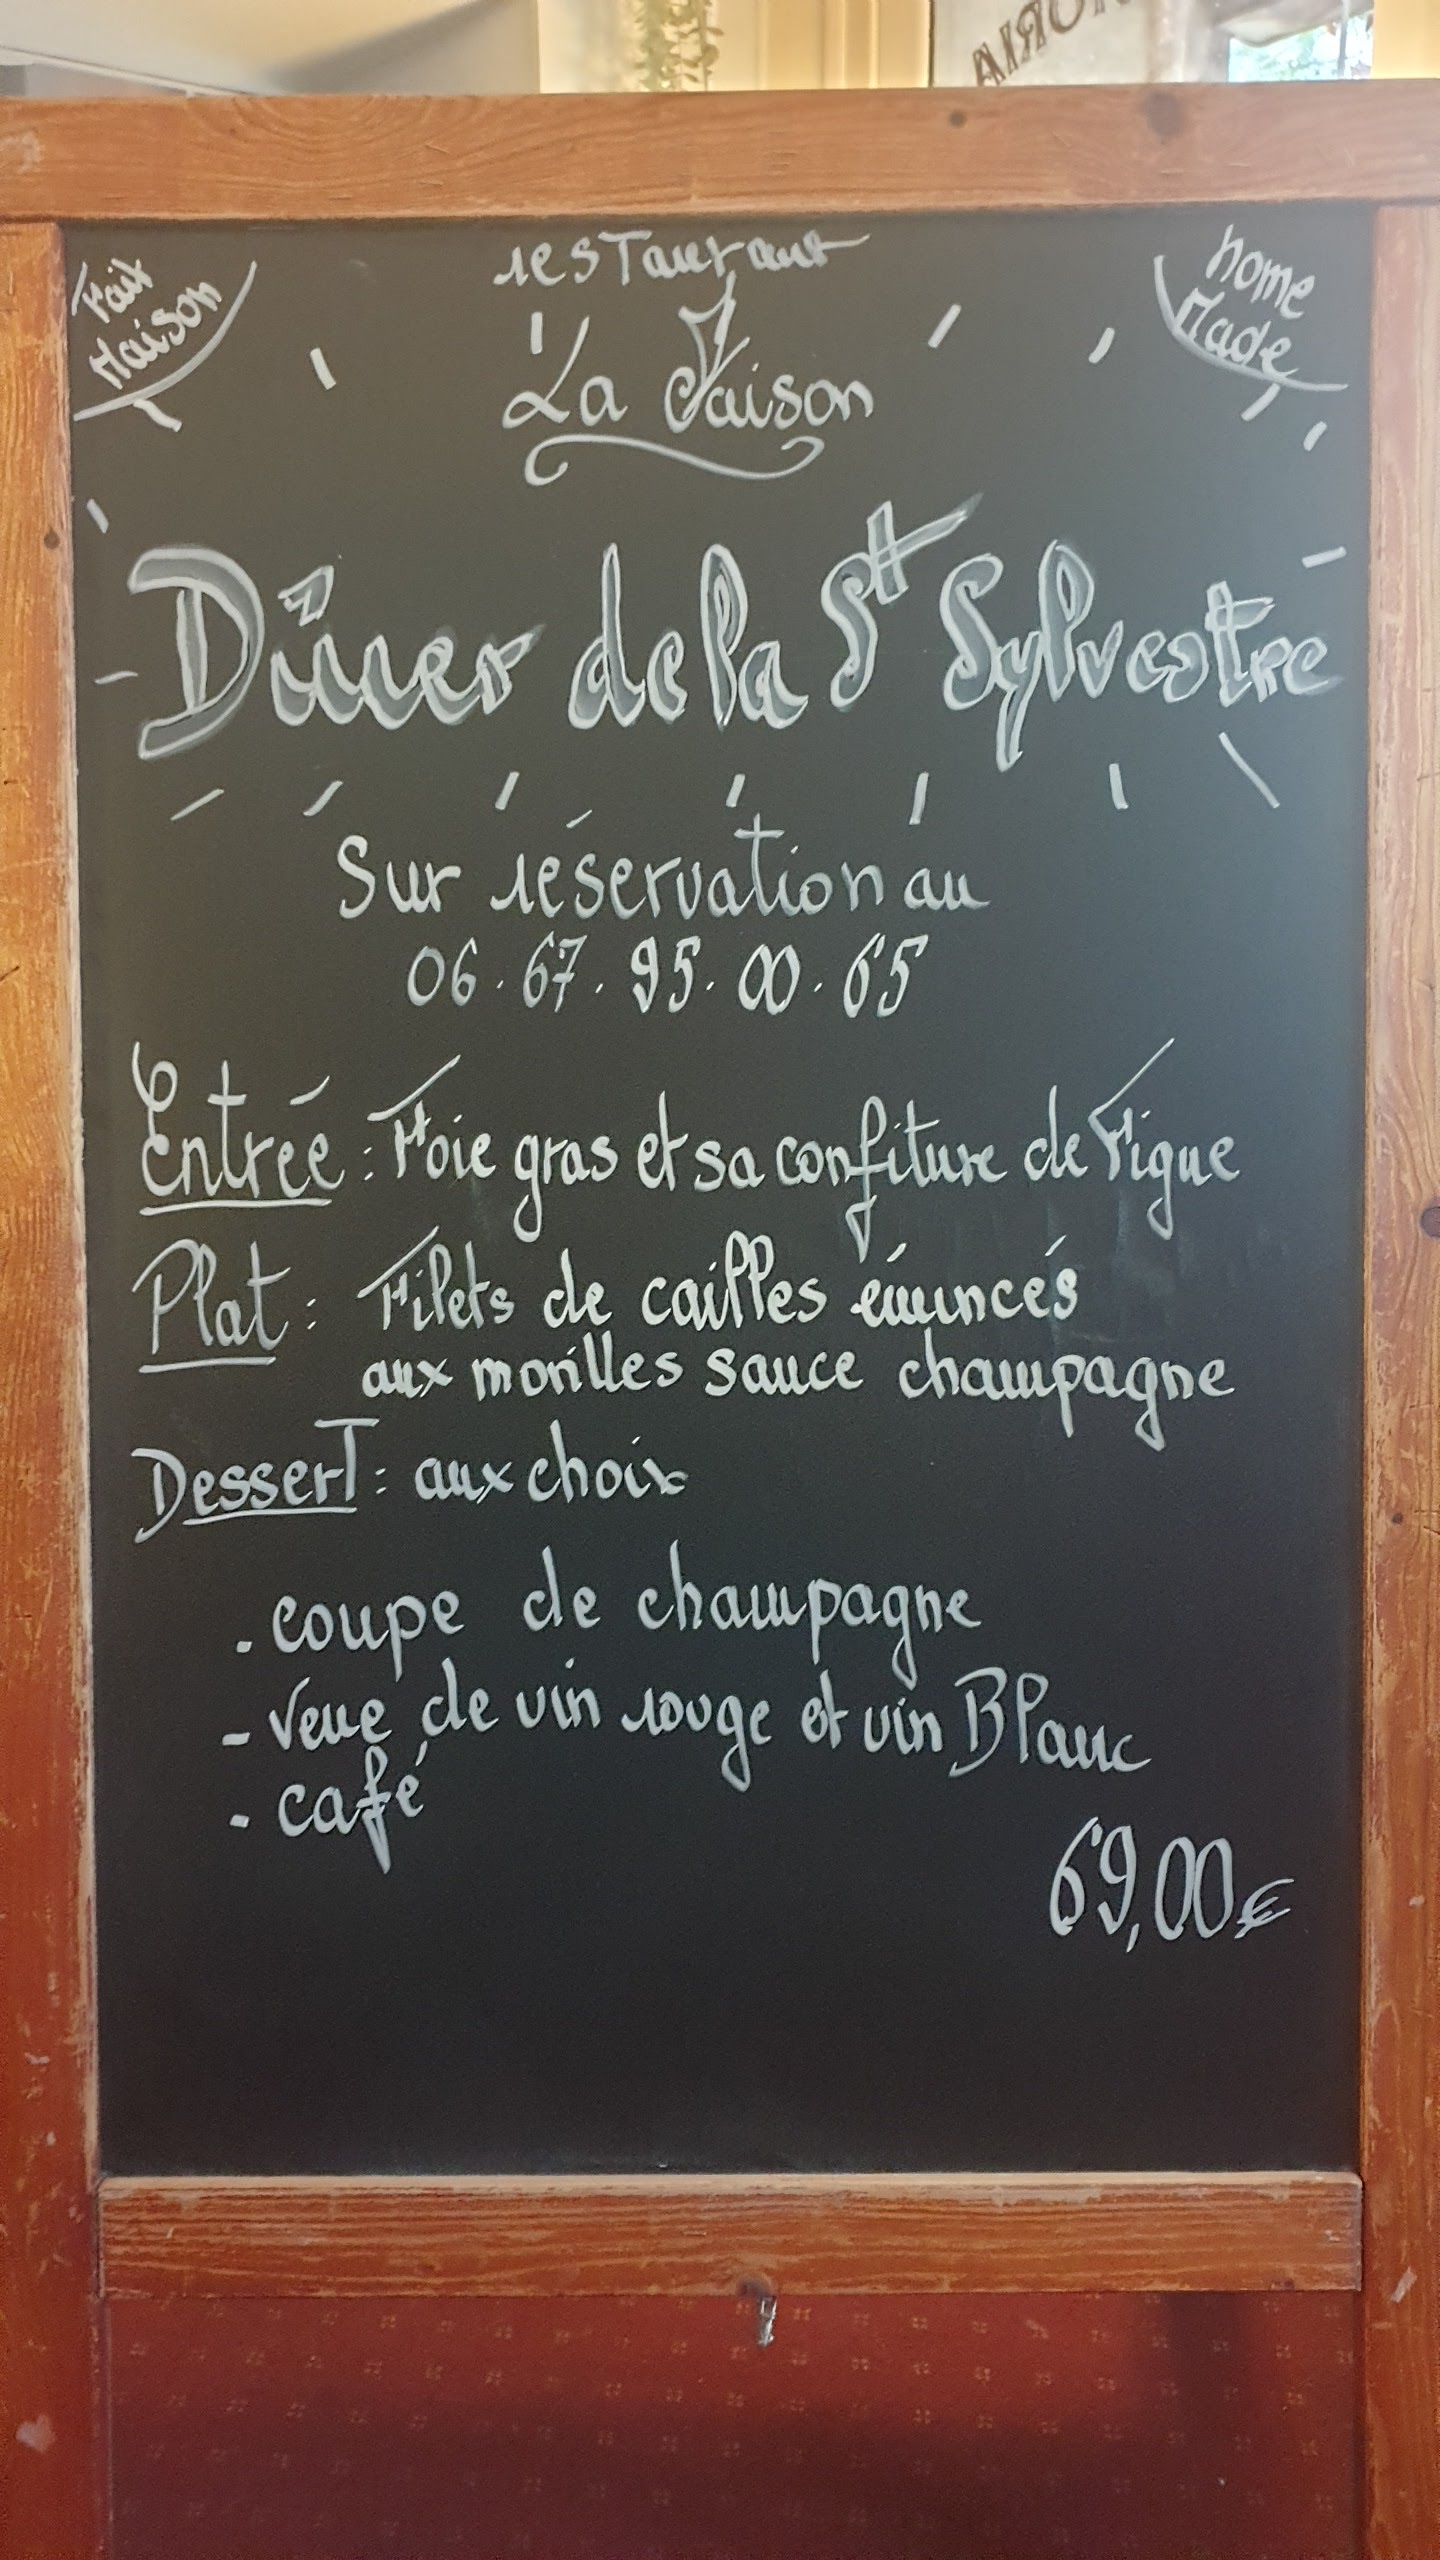 Fait
Maison
home
Made
restaurant
La Maison
Dîner de la St Sylvestre
Sur réservation au
06.67.95.00.65
Entrée : Foie gras et sa confiture de Figue
Plat : Filets de cailles émincés
aux morilles sauce champagne
Dessert : aux choix
. coupe de champagne
- verre de vin rouge et vin Blanc
- café
69,00€